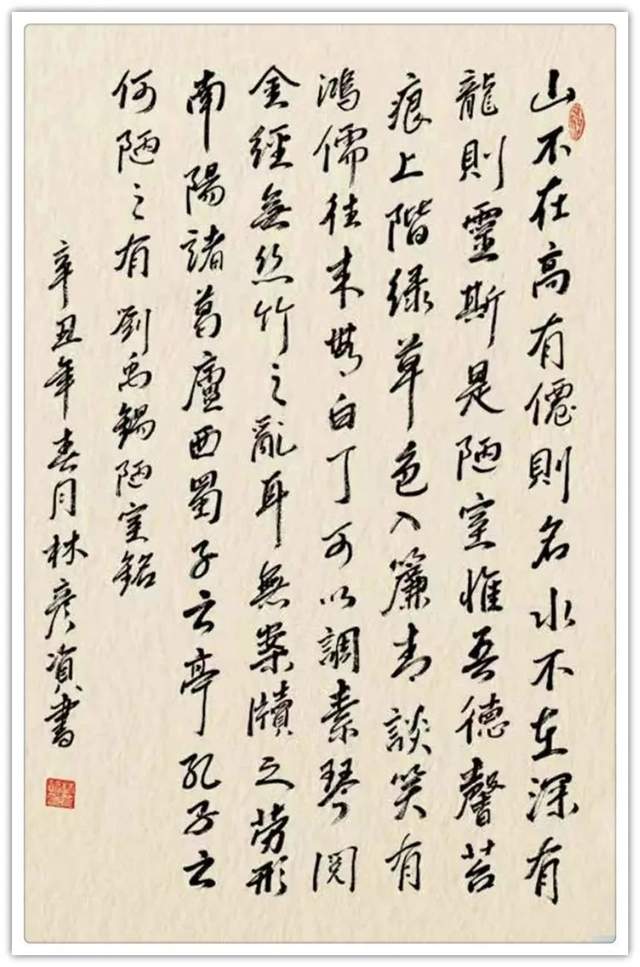 山不在高有僊則名水不在深有
龍則靈斯是陋室惟吾德馨苔
痕上階绿草色入簾青談笑有
鴻儒往来無白丁可以調素琴閱
金經無丝竹之亂耳無案牘之劳形
南陽諸葛廬西蜀子云亭孔子云
何陋之有劉禹錫陋室銘
辛丑年春月林彦資書